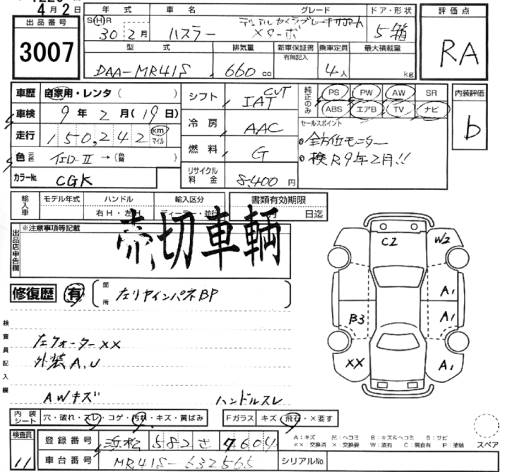 4月2日
出品番号
3007
年式
SHR 30年2月
車名
ハスラー
グレード
デュアルカメラブレーキサポート
Xターボ
ドア・形状
5箱
評価点
RA
型式
DAA-MR41S
排気量
660cc
新車保証書
有無記入
乗車定員
4人
最大積載量
kg
車歴 自家用・レンタ( )
車検 9年2月(19日)
走行 150,242 km マイル
色 元色
カラーNo. CGK
シフト CVT IAT
冷房 AAC
燃料 G
リサイクル料金 8,400円
純正のみ
PS PW AW SR
ABS エアB TV ナビ
セールスポイント
全方位モニター
検R9年2月!!
内装評価
b
輸入車 モデル年式 ハンドル 右H・左 輸入区分 ディーラー・並行
書類有効期限 日迄
出品店申告欄
※注意事項等記載
売切車輌
修復歴 有
箇所
左リヤインパネBP
検査員記入欄
左クォーターXX
外装A,U
AWキズ ハンドルスレ
C2 W2
A1
B3 A1
XX A1
内装シート 穴・破れ・スレ・コゲ・汚れ・キズ・黄ばみ
Fガラス キズ・飛石・X要す
A:キズ P:ヘコミ B:キズ&ヘコミ S:サビ
スペア
検査員 11
登録番号 浜松 582 さ 4604
車台番号 MR41S-632565
シリアルNo.